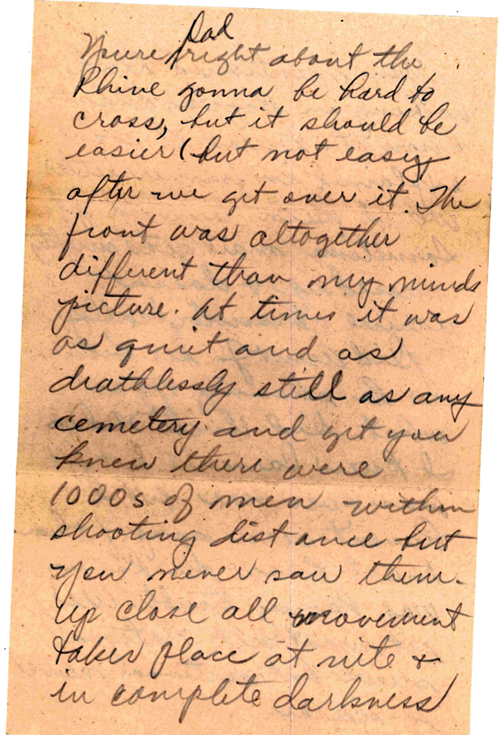 Dad
You're right about the
Rhine gonna be hard to
cross, but it should be
easier (but not easy
after we get over it. The
front was altogether
different than my minds
picture. At times it was
as quiet and as
deathlessly still as any
cemetery and yet you
knew there were
1000s of men within
shooting distance but
you never saw them.
Up close all movement
takes place at nite +
in complete darkness